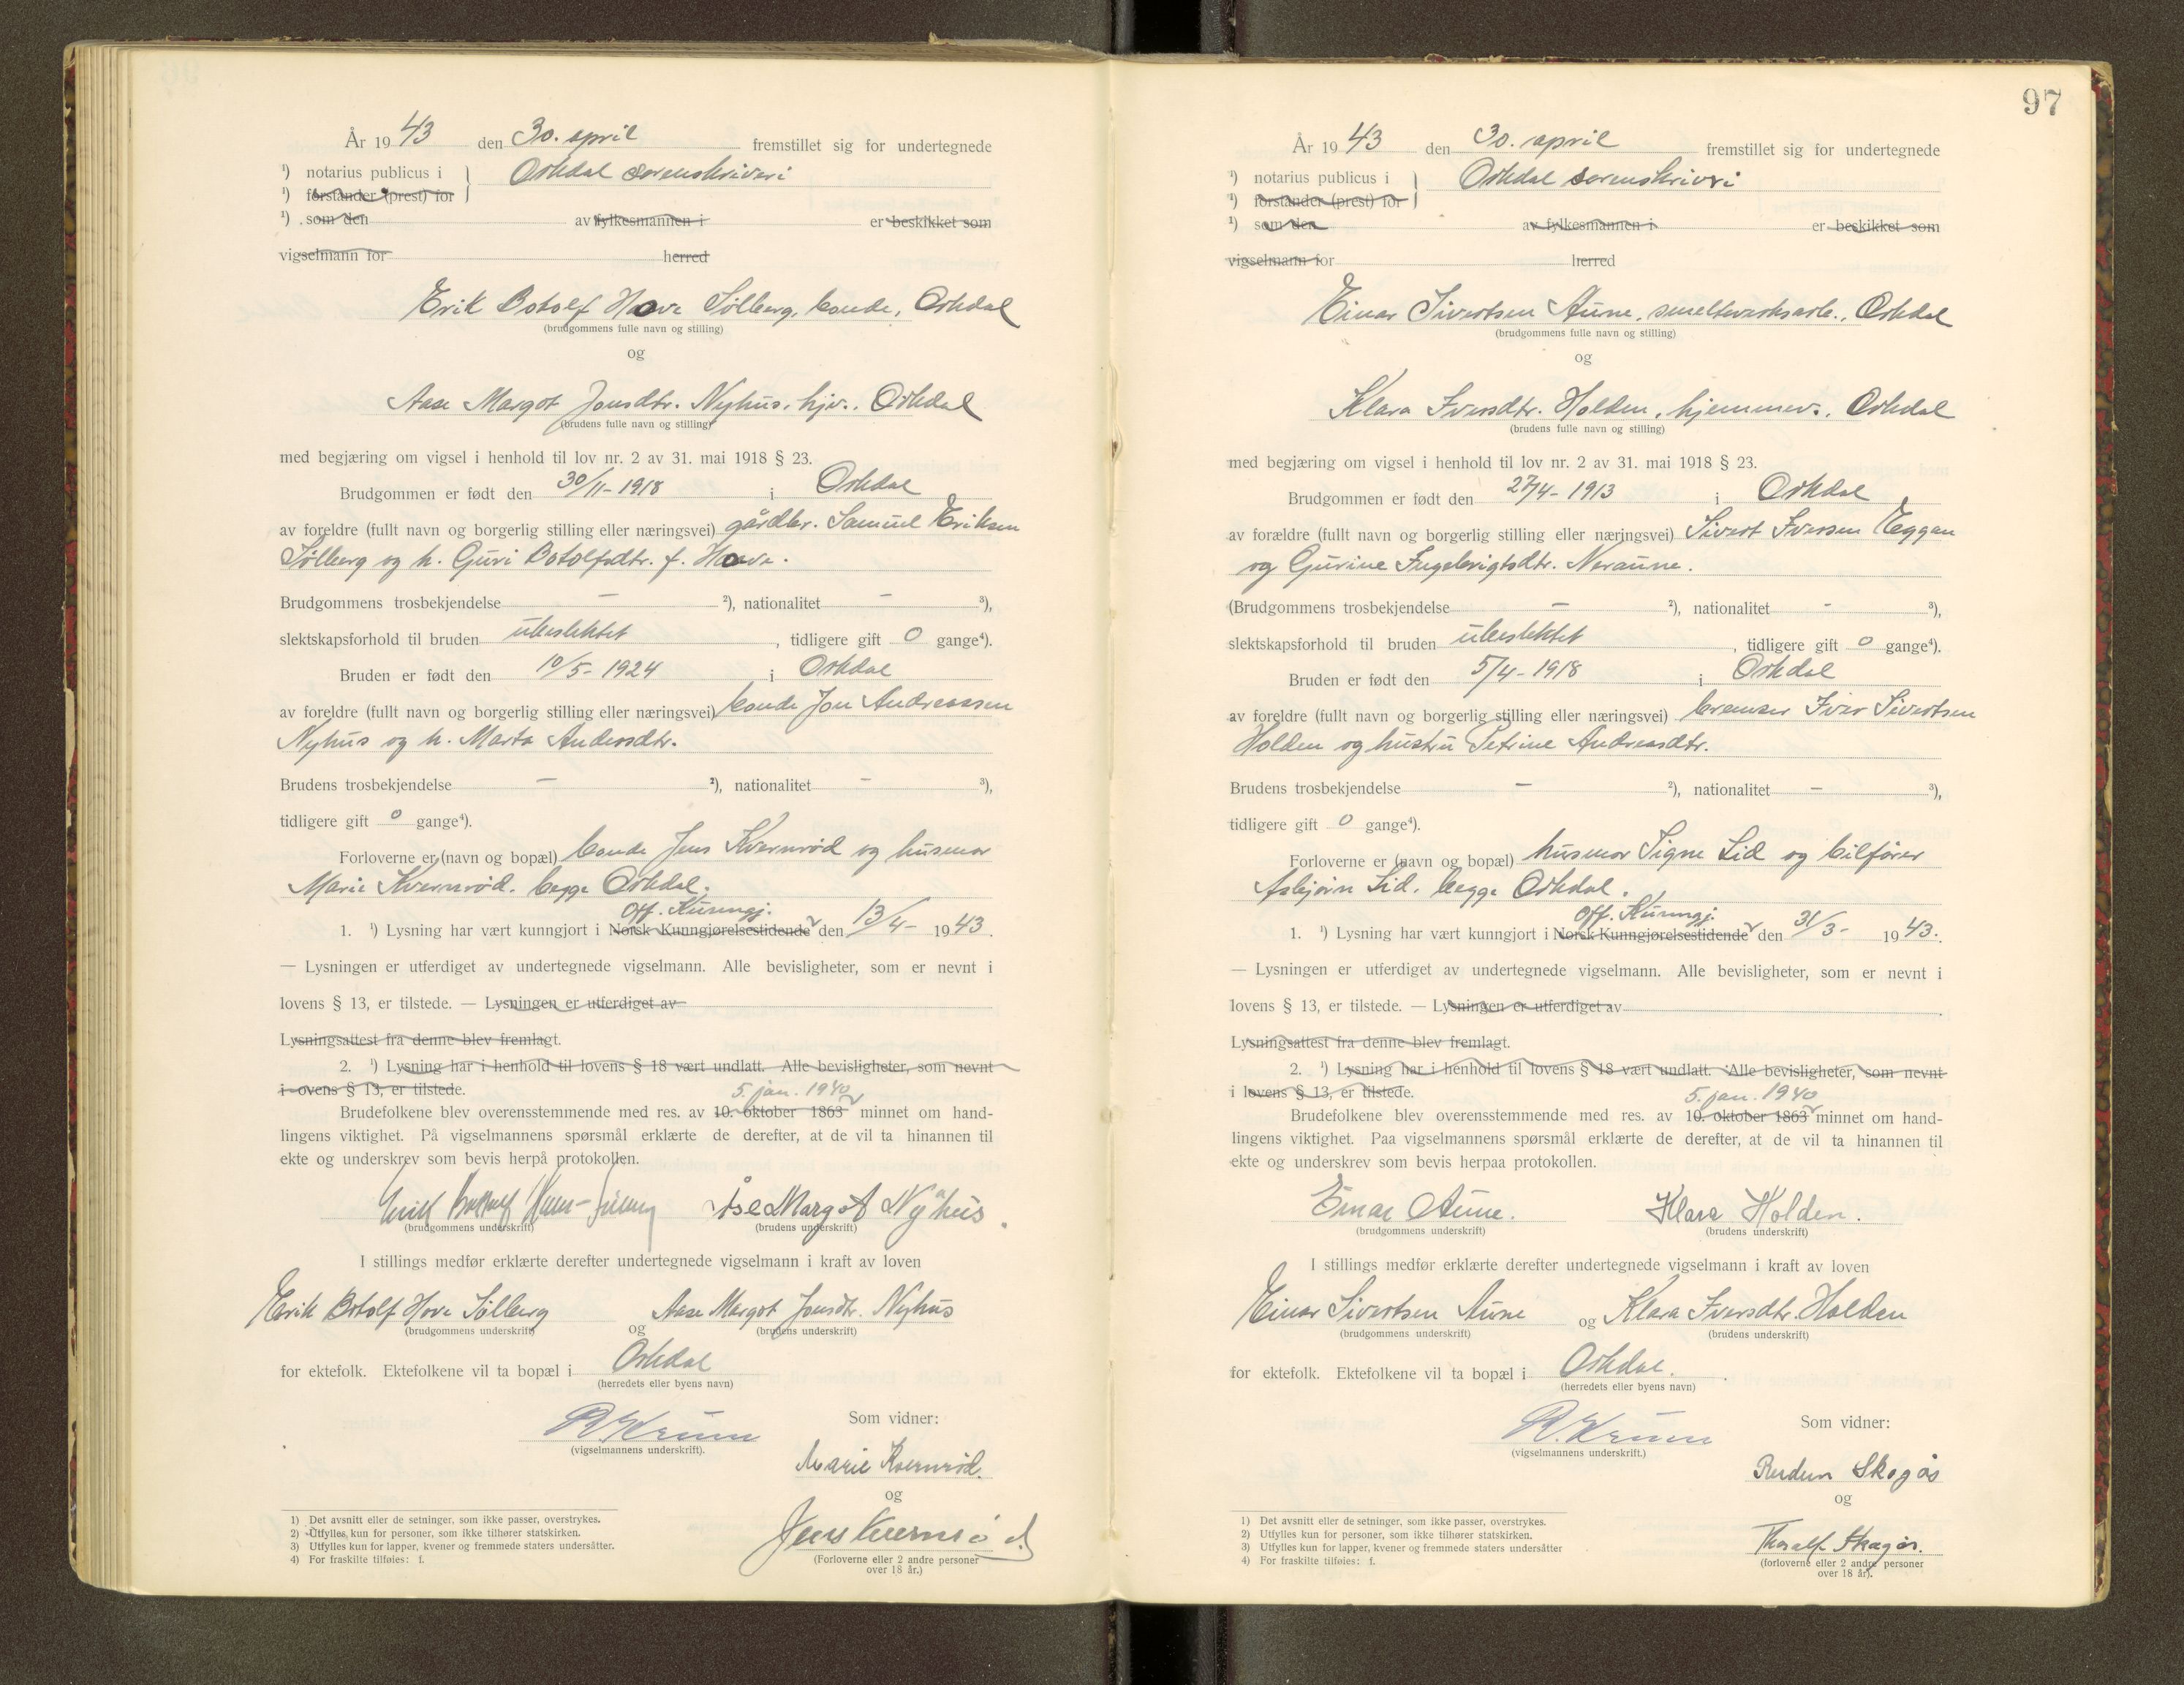 År 1943 den 30. april fremstillet sig for undertegnede
¹) notarius publicus i Orkdal sorenskriveri
¹) forstander (prest) for
¹) som den av fylkesmannen i er beskikket som
vigselmann for herred
Erik Botolf Hove Sølberg, bonde, Orkdal
(brudgommens fulle navn og stilling)
og
Aase Margot Jonsdtr. Nyhus, hjv., Orkdal
(brudens fulle navn og stilling)
med begjæring om vigsel i henhold til lov nr. 2 av 31. mai 1918 § 23.
Brudgommen er født den 30/11-1918 i Orkdal
av foreldre (fullt navn og borgerlig stilling eller næringsvei) gårdbr. Samuel Eriksen
Sølberg og h. Guri Botolfsdtr. f. Hove.
Brudgommens trosbekjendelse — ²), nationalitet — ³),
slektskapsforhold til bruden ubeslektet, tidligere gift 0 gange⁴).
Bruden er født den 10/5-1924 i Orkdal
av foreldre (fullt navn og borgerlig stilling eller næringsvei) bonde Jon Andreassen
Nyhus og h. Marta Andersdtr.
Brudens trosbekjendelse — ²), nationalitet — ³),
tidligere gift 0 gange⁴).
Forloverne er (navn og bopæl) bonde Jens Kvernrød og husmor
Marie Kvernrød, begge Orkdal.
Off. Kunngj.
1. ¹) Lysning har vært kunngjort i Norsk Kunngjørelsestidende den 13/4- 1943.
— Lysningen er utferdiget av undertegnede vigselmann. Alle bevisligheter, som er nevnt i
lovens § 13, er tilstede. — Lysningen er utferdiget av
Lysningsattest fra denne blev fremlagt.
2. ¹) Lysning har i henhold til lovens § 18 vært undlatt. Alle bevisligheter, som nevnt
i lovens § 13, er tilstede.
5. jan. 1940
Brudefolkene blev overensstemmende med res. av 10. oktober 1863 minnet om hand-
lingens viktighet. På vigselmannens spørsmål erklærte de derefter, at de vil ta hinannen til
ekte og underskrev som bevis herpå protokollen.
Erik Botholf Hove-Sølberg Åse Margot Nyhus.
(brudgommens underskrift) (brudens underskrift)
I stillings medfør erklærte derefter undertegnede vigselmann i kraft av loven
Erik Botolf Hove Sølberg og Aase Margot Jonsdtr. Nyhus
(brudgommens underskrift) (brudens underskrift)
for ektefolk. Ektefolkene vil ta bopæl i Orkdal
(herredets eller byens navn)
Som vidner:
(vigselmannens underskrift).
Marie Kvernrød.
og
Jens Kvernrød
(Forloverne eller 2 andre personer
over 18 år.)
1) Det avsnitt eller de setninger, som ikke passer, overstrykes.
2) Utfylles kun for personer, som ikke tilhører statskirken.
3) Utfylles kun for lapper, kvener og fremmede staters undersåtter.
4) For fraskilte tilføies: f.
97
År 1943 den 30. april fremstillet sig for undertegnede
¹) notarius publicus i Orkdal sorenskriveri
¹) forstander (prest) for
¹) som den av fylkesmannen i er beskikket som
vigselmann for herred
Einar Sivertsen Aune, smelteverksarb., Orkdal
(brudgommens fulle navn og stilling)
og
Klara Iversdtr. Holden, hjemmev., Orkdal
(brudens fulle navn og stilling)
med begjæring om vigsel i henhold til lov nr. 2 av 31. mai 1918 § 23.
Brudgommen er født den 27/4-1913 i Orkdal
av forældre (fullt navn og borgerlig stilling eller næringsvei) Sivert Iversen Eggan
og Gurine Ingebrigtsdtr. Neraune.
(Brudgommens trosbekjendelse — ²), nationalitet - ³),
slektskapsforhold til bruden ubeslektet, tidligere gift 0 gange⁴).
Bruden er født den 5/4-1918 i Orkdal
av foreldre (fullt navn og borgerlig stilling eller næringsvei) bremser Iver Sivertsen
Holden og hustru Petrine Andreasdtr.
Brudens trosbekjendelse — ²), nationalitet — ³),
tidligere gift 0 gange⁴).
Forloverne er (navn og bopæl) husmor Signe Lid og bilfører
Asbjørn Lid, begge Orkdal.
Off. Kunngj.
1. ¹) Lysning har vært kunngjort i Norsk Kunngjørelsestidende den 31/3- 1943.
— Lysningen er utferdiget av undertegnede vigselmann. Alle bevisligheter, som er nevnt i
lovens § 13, er tilstede. — Lysningen er utferdiget av
Lysningsattest fra denne blev fremlagt.
2. ¹) Lysning har i henhold til lovens § 18 vært undlatt. Alle bevisligheter, som nevnt
i lovens § 13, er tilstede.
5. jan. 1940
Brudefolkene blev overensstemmende med res. av 10. oktober 1863 minnet om hand-
lingens viktighet. Paa vigselmannens spørsmål erklærte de derefter, at de vil ta hinannen til
ekte og underskrev som bevis herpaa protokollen.
Einar Aune. Klara Holden.
(brudgommens underskrift) (brudens underskrift)
I stillings medfør erklærte derefter undertegnede vigselmann i kraft av loven
Einar Sivertsen Aune og Klara Iversdtr. Holden
(brudgommens underskrift) (brudens underskrift)
for ektefolk. Ektefolkene vil ta bopæl i Orkdal.
(herredets eller byens navn)
Som vidner:
(vigselmannens underskrift.)
Skogås
og
Thoralf Skogås.
(forloverne eller 2 andre personer
over 18 år).
1) Det avsnitt eller de setninger, som ikke passer, overstrykes.
2) Utfylles kun for personer, som ikke tilhører statskirken.
3) Utfylles kun for lapper, kvener og fremmede staters undersåtter
4) For fraskilte tilføies: f.